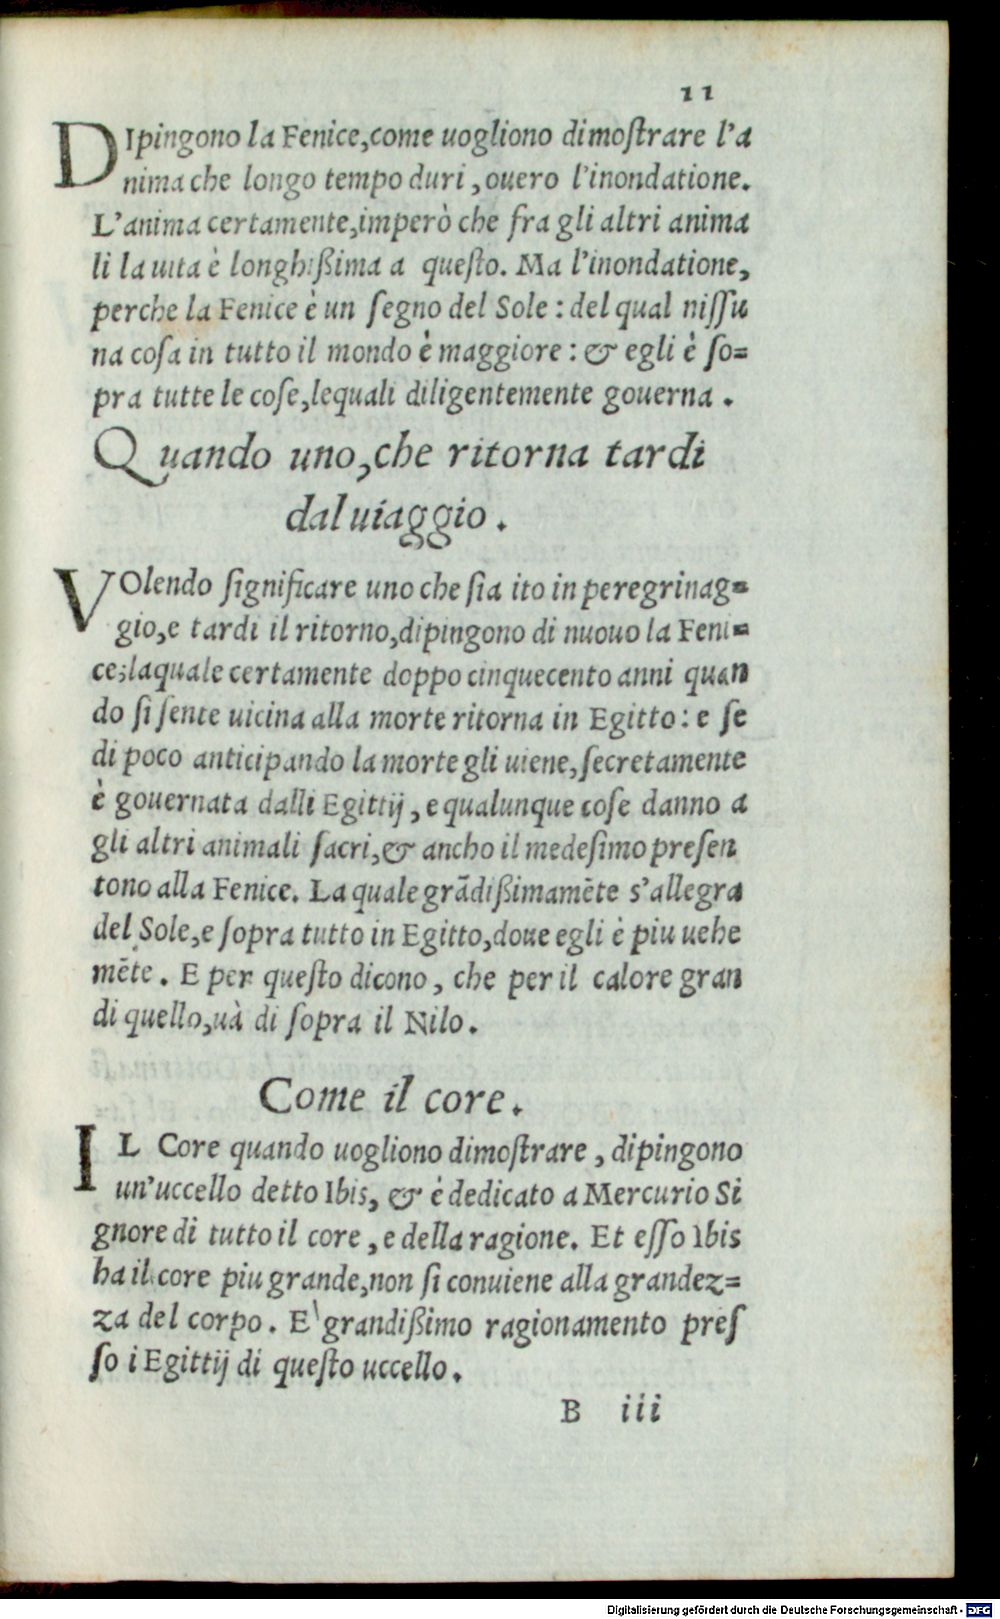 11
DIpingono la Fenice,come uogliono dimoſtrare l'a
nima che longo tempo duri, ouero l'inondatione.
L'anima certamente,imperò che fra gli altri anima
li la uita è longhißima a queſto. Ma l'inondatione,
perche la Fenice è un ſegno del Sole: del qual niſſu
na coſa in tutto il mondo è maggiore: & egli è ſo=
pra tutte le coſe,lequali diligentemente gouerna.
Quando uno,che ritorna tardi
dal uiaggio.
VOlendo ſignificare uno che ſia ito in peregrinag=
gio,e tardi il ritorno,dipingono di nuouo la Feni=
ce;laquale certamente doppo cinquecento anni quan
do ſi ſente uicina alla morte ritorna in Egitto: e ſe
di poco anticipando la morte gli uiene,ſecretamente
è gouernata dalli Egittij, e qualunque coſe danno a
gli altri animali ſacri,& ancho il medeſimo preſen
tono alla Fenice. La quale grādißimamēte s'allegra
del Sole,e ſopra tutto in Egitto,doue egli è piu uehe
mēte. E per queſto dicono, che per il calore gran
di quello,uà di ſopra il Nilo.
Come il core.
IL Core quando uogliono dimoſtrare, dipingono
un'uccello detto Ibis, & è dedicato a Mercurio Si
gnore di tutto il core, e della ragione. Et eſſo Ibis
ha il core piu grande,non ſi conuiene alla grandez=
za del corpo. E' grandißimo ragionamento preſ
ſo i Egittij di queſto uccello.
B iii
Digitalisierung gefördert durch die Deutsche Forschungsgemeinschaft - DFG